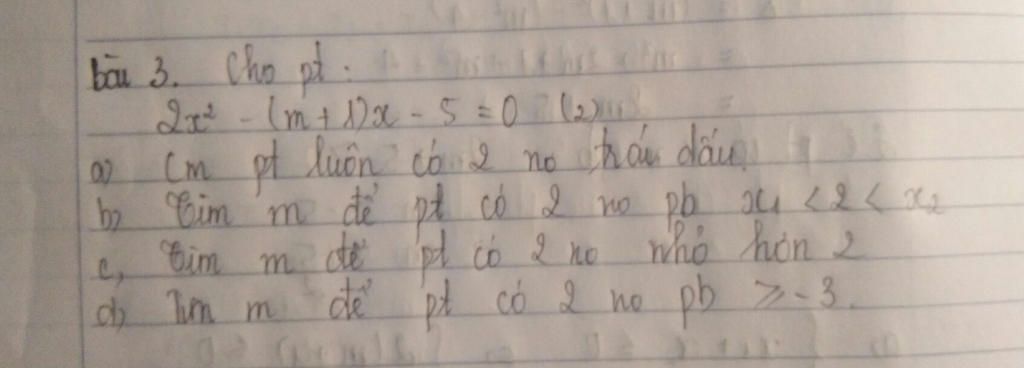 bài 3. Cho pt :
2x² - (m+1)x - 5 = 0 (2)
a) Cm pt luôn có 2 no trái dấu.
b) Tìm m để pt có 2 no pb x₁ < 2 < x₂
c, Tìm m để pt có 2 no nhỏ hơn 2
d) Tìm m để pt có 2 no pb ≥ -3.